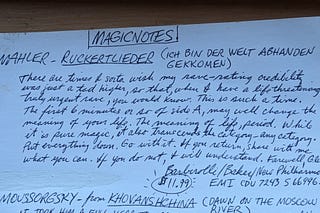 MAGICNOTES
MAHLER - RUCKERTLIEDER (ICH BIN DER WELT ABHANDEN
GEKKOMEN)
There are times I sorta wish my rave-rating credibility
was just a tad higher, so that, when I have a life-threatening
truly urgent rave, you would know. This is such a time.
The first 6 minutes or so of side A, may well change the
meaning of your life. The meaning of life, period. While
it is pure magic, it also transcends the category - any category.
Put everything down. Go with it. If you return, share with me
what you can. If you do not, I will understand. Farewell,
Barbirolli/Baker/New Philharmo
$11.99 EMI CDU 7243 5 66996
MOUSSORGSKY - from KHOVANSHCHINA (DAWN ON THE MOSCOW
RIVER)
IT TOOK HIM A FULL YEAR